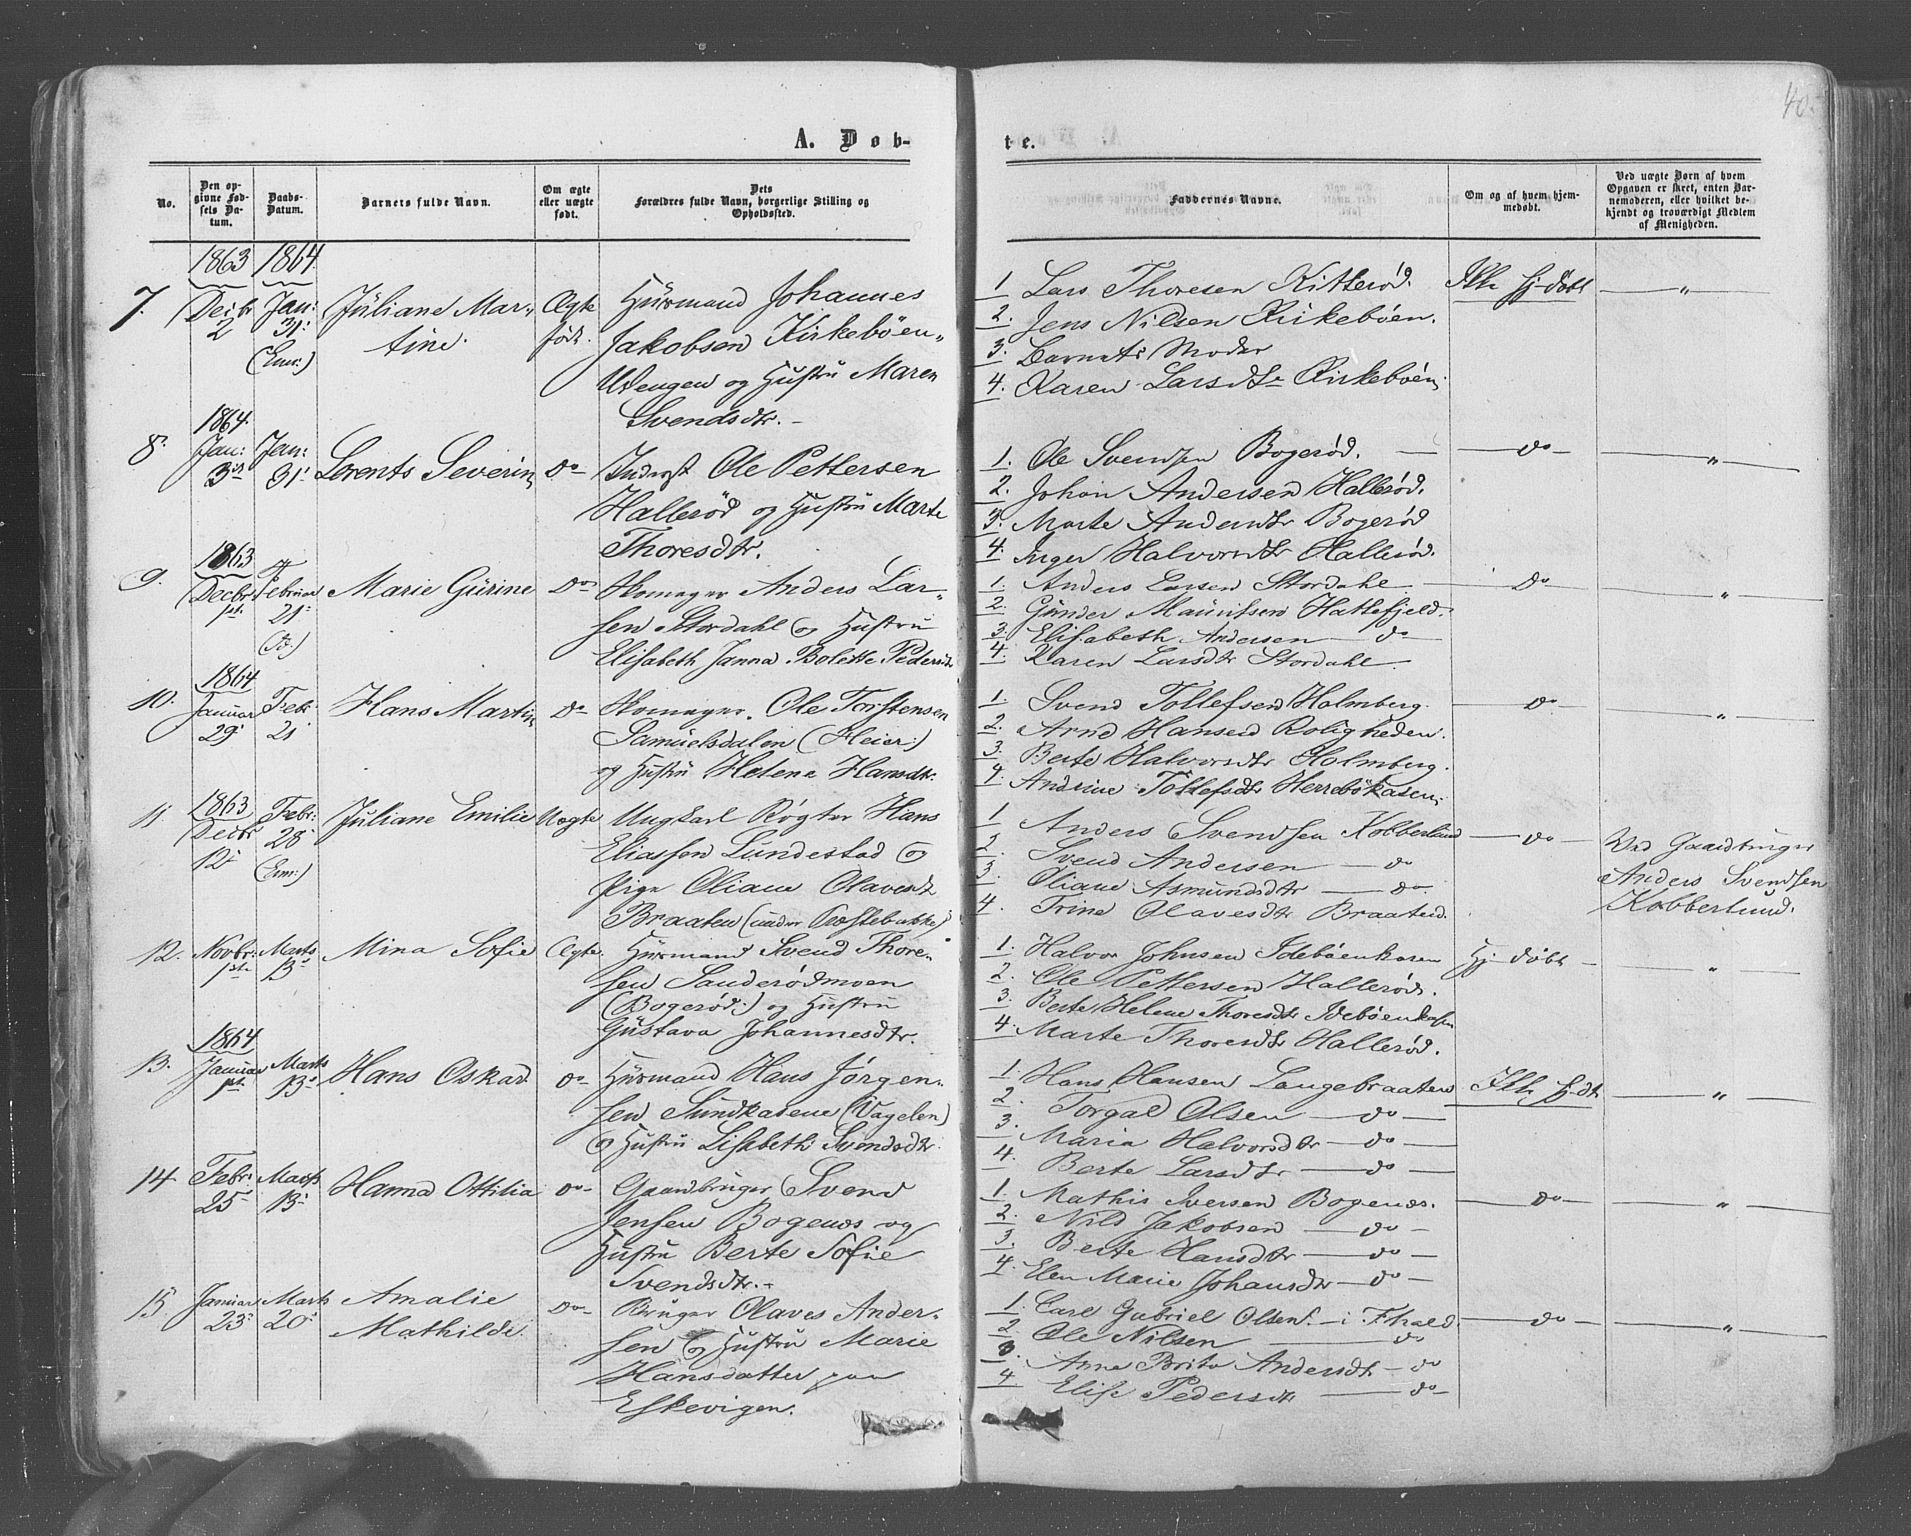 40.
A. Døb-
te.
No.
Den op-
givne Fød-
sels Da-
tum.
Daabs-
Datum.
Barnets fulde Navn.
Om ægte
eller uægte
født.
Dets
Forældres fulde Navn, borgerlige Stilling og
Opholdssted.
Faddernes Navne.
Om og af hvem hjem-
medøbt.
Ved uægte Børn af hvem
Opgaven er skeet, enten Bar-
nemoderen, eller hvilket be-
kjendt og troværdigt Medlem
af Menigheden.
1863 1864
7. Decbr 2 Jan: 31: (Enn:)
Juliane Mar-
tine.
Ægte
født.
Huusmand Johannes
Jakobsen Kirkebøen-
Udengen og Hustru Maren
Svendsdtr. -
1 Lars Thoresen Kitterød.
2. Jens Nilsen Kirkebøen.
3. Barnets Moder
4. Karen Larsdtr Kirkebøen;
Ikke hj-døbt
— " —
1864.
8. Jan: 3die Jan: 31:
Lorents Severin
Do-
Inderst Ole Pettersen
Hallerød og Hustru Marte
Thoresdtr.
1. Ole Svendsen Bogerød. —
2. Johan Andersen Hallerød.
3. Marte Andersdtr Bogerød
4. Inger Halvorsdtr Hallerød.
— do —
"
1863
9. Decbr 1st. Februar 21:
Marie Gurine
Do-
Skomager Anders Lar-
sen Stordahl og Hustru
Elisabeth Janna Bolette Pedersdtr
1. Anders Larsen Stordahl
2. Gunder Mauritsen Hattefjeld.
3. Elisabeth Andersen — do —
4. Karen Larsdtr Stordahl
— Do
"
1864
10. Januar 29: Febr. 21
Hans Martin
Do-
Skomager. Ole Torstensen
Samuelsdalen (Heier:)
og Hustru Helena Hansdtr.
1. Svend Tollefsen Holmberg.
2. Arne Hansen Roligheden.
3. Berte Halvorsdtr Holmberg.
4. Andrine Tollefsdtr Herrebøkasen;
— Do
"
1863
11. Decbr 12: Febr: 28 (Enn:)
Juliane Emilie
Uægte
Ungkarl Røgter Hans
Eliassen Lundestad og
Pige Oliane Olavesdt
Braaten (under Præstebakke)
1 Anders Svendsen Kobberlund
2. Svend Andersen — do
3. Oliane Asmundsdtr — do.
4. Trine Olavesdtr Braaten.
— do —
Ved Gaardbruger
Anders Svendsen
Kobberlund.
12. Novbr: 1ste Marts 13:
Mina Sofie
Ægte.
Huusmand Svend Thore-
sen Sanderødmoen
(Bogerød:) og Hustru
Gustava Johannesdtr.
1. Halvor Johnsen Idebøenkasen
2. Ole Pettersen Hallerød.
3. Berte Helene Thoresdtr Idebøenkasen
4. Marte Thoresdtr Hallerød.
Hj-døbt —
"
1864
13. Januar 1st. Marts 13:
Hans Oskar
do-
Huusmand Hans Jørgen-
sen Sundkasene (Vagelen)
og Hustru Lisabeth Svendsdtr.
1. Hans Hansen Langebraaten
2. Torgal Olsen — do —
3. Maria Halvorsdtr — do —
4. Berte Larsdtr — do —
Ikke hj-dt
— " —
14. Febr: 25- Marts 13:
Hanna Ottilia
do-
Gaardbruger Svend
Jensen Bogenæs og
Hustru Berte Sofie
Svendsdtr. -
1. Mathis Iversen Bogenæs.
2. Nils Jakobsen — do —
3. Berte Hansdtr — do —
4. Elen Marie Johansdtr — do —
— do —
"
15. Januar 23: Marts 20:
Amalie
Mathilde.
Do-
Bruger Olaves Ander-
sen og Hustru Marie
Hansdatter paa
Eskevigen.
1. Carl Gabriel Olsen. — i Fhald.
2. Ole Nilsen — do
3. Anne Brita Andersdt. — do
4 Elise Pedersdtr — do —
— do —
"